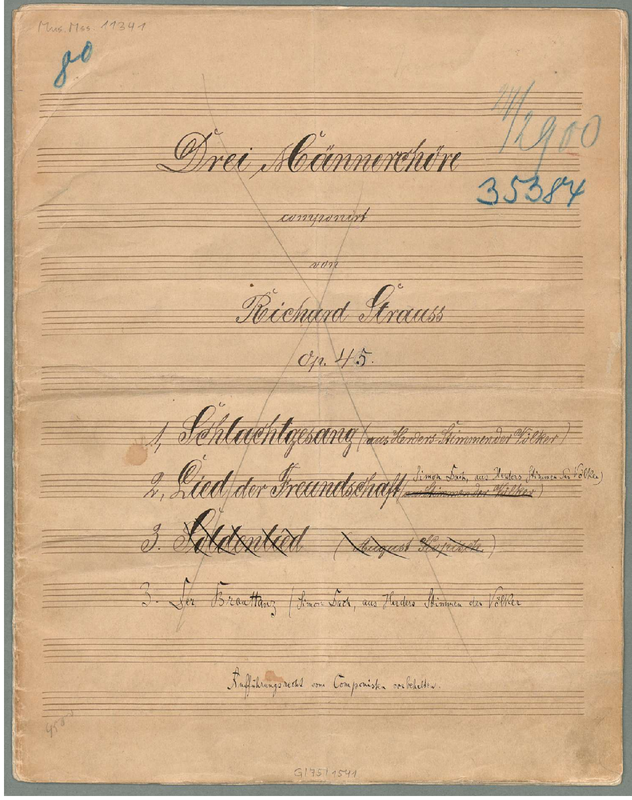 Mus. Mss. 11341
80
12900
35384
Drei Männerchöre
componirt
von
Richard Strauss
Op. 45.
1, Schlachtgesang (aus Herders Stimmen der Völker)
2, Lied der Freundschaft (Simon Dach, aus Herders Stimmen der Völker)
Stimmen der Völker)
3. Soldenlied (August Kopisch)
3. Der Brauttanz (Simon Dach, aus Herders Stimmen der Völker
Aufführungsrecht vom Componisten vorbehalten.
4500
G/75/1541